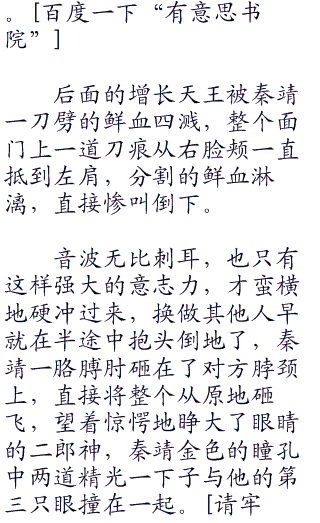 。[百度一下“有意思书
院”]
后面的增长天王被秦靖
一刀劈的鲜血四溅，整个面
门上一道刀痕从右脸颊一直
抵到左肩，分割的鲜血淋
漓，直接惨叫倒下。
音波无比刺耳，也只有
这样强大的意志力，才蛮横
地硬冲过来，换做其他人早
就在半途中抱头倒地了，秦
靖一胳膊肘砸在了对方脖颈
上，直接将整个从原地砸
飞，望着惊愕地睁大了眼睛
的二郎神，秦靖金色的瞳孔
中两道精光一下子与他的第
三只眼撞在一起。[请牢